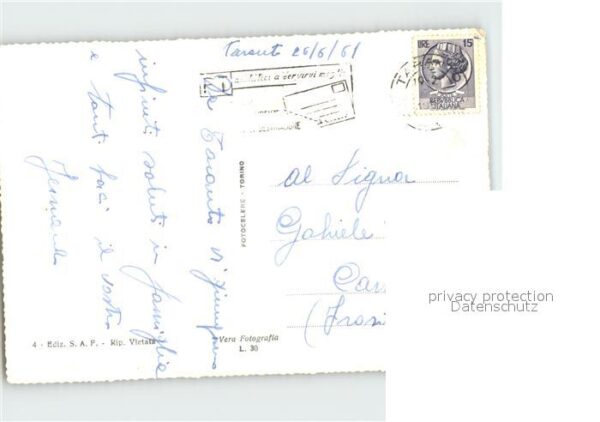 Tarent 26/6/61
Da Taranto Vi giungano
infiniti saluti in famiglia
e tanti baci il vostro
aiutateci a servirvi meglio
TARANTO
LIRE 15
REPUBBLICA
ITALIANA
Al Signor
Gabriele
(Frosi
FOTOCELERE - TORINO
Vera Fotografia
L. 30
4 - Ediz. S. A. F. - Rip. Vietata
privacy protection
Datenschutz